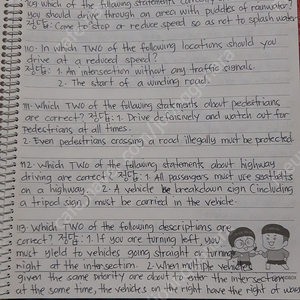 109. which of the following statements
you should drive through an area with puddles of rainwater?
정답: Come to stop or reduce speed so as not to splash water
110. In which TWO of the following locations should you
drive at a reduced speed?
정답: 1. An intersection without any traffic signals.
2. The start of a winding road.
111. Which TWO of the following statements about pedestrians
are correct? 정답: 1. Drive defensively and watch out for
pedestrians at all times.
2. Even pedestrians crossing a road illegally must be protected.
112. Which TWO of the following statements about highway
driving are correct? 정답: 1. All passengers must use seatbelts
on a highway. 2. A vehicle breakdown sign (including
a tripod sign) must be carried in the vehicle
113. Which TWO of the following descriptions are
correct? 정답: 1. If you are turning left, you
must yield to vehicles going straight or turning
right at the intersection. 2. When multiple vehicles
given the same priority are about to enter the intersection
at the same time, the vehicles on the right have the right of way